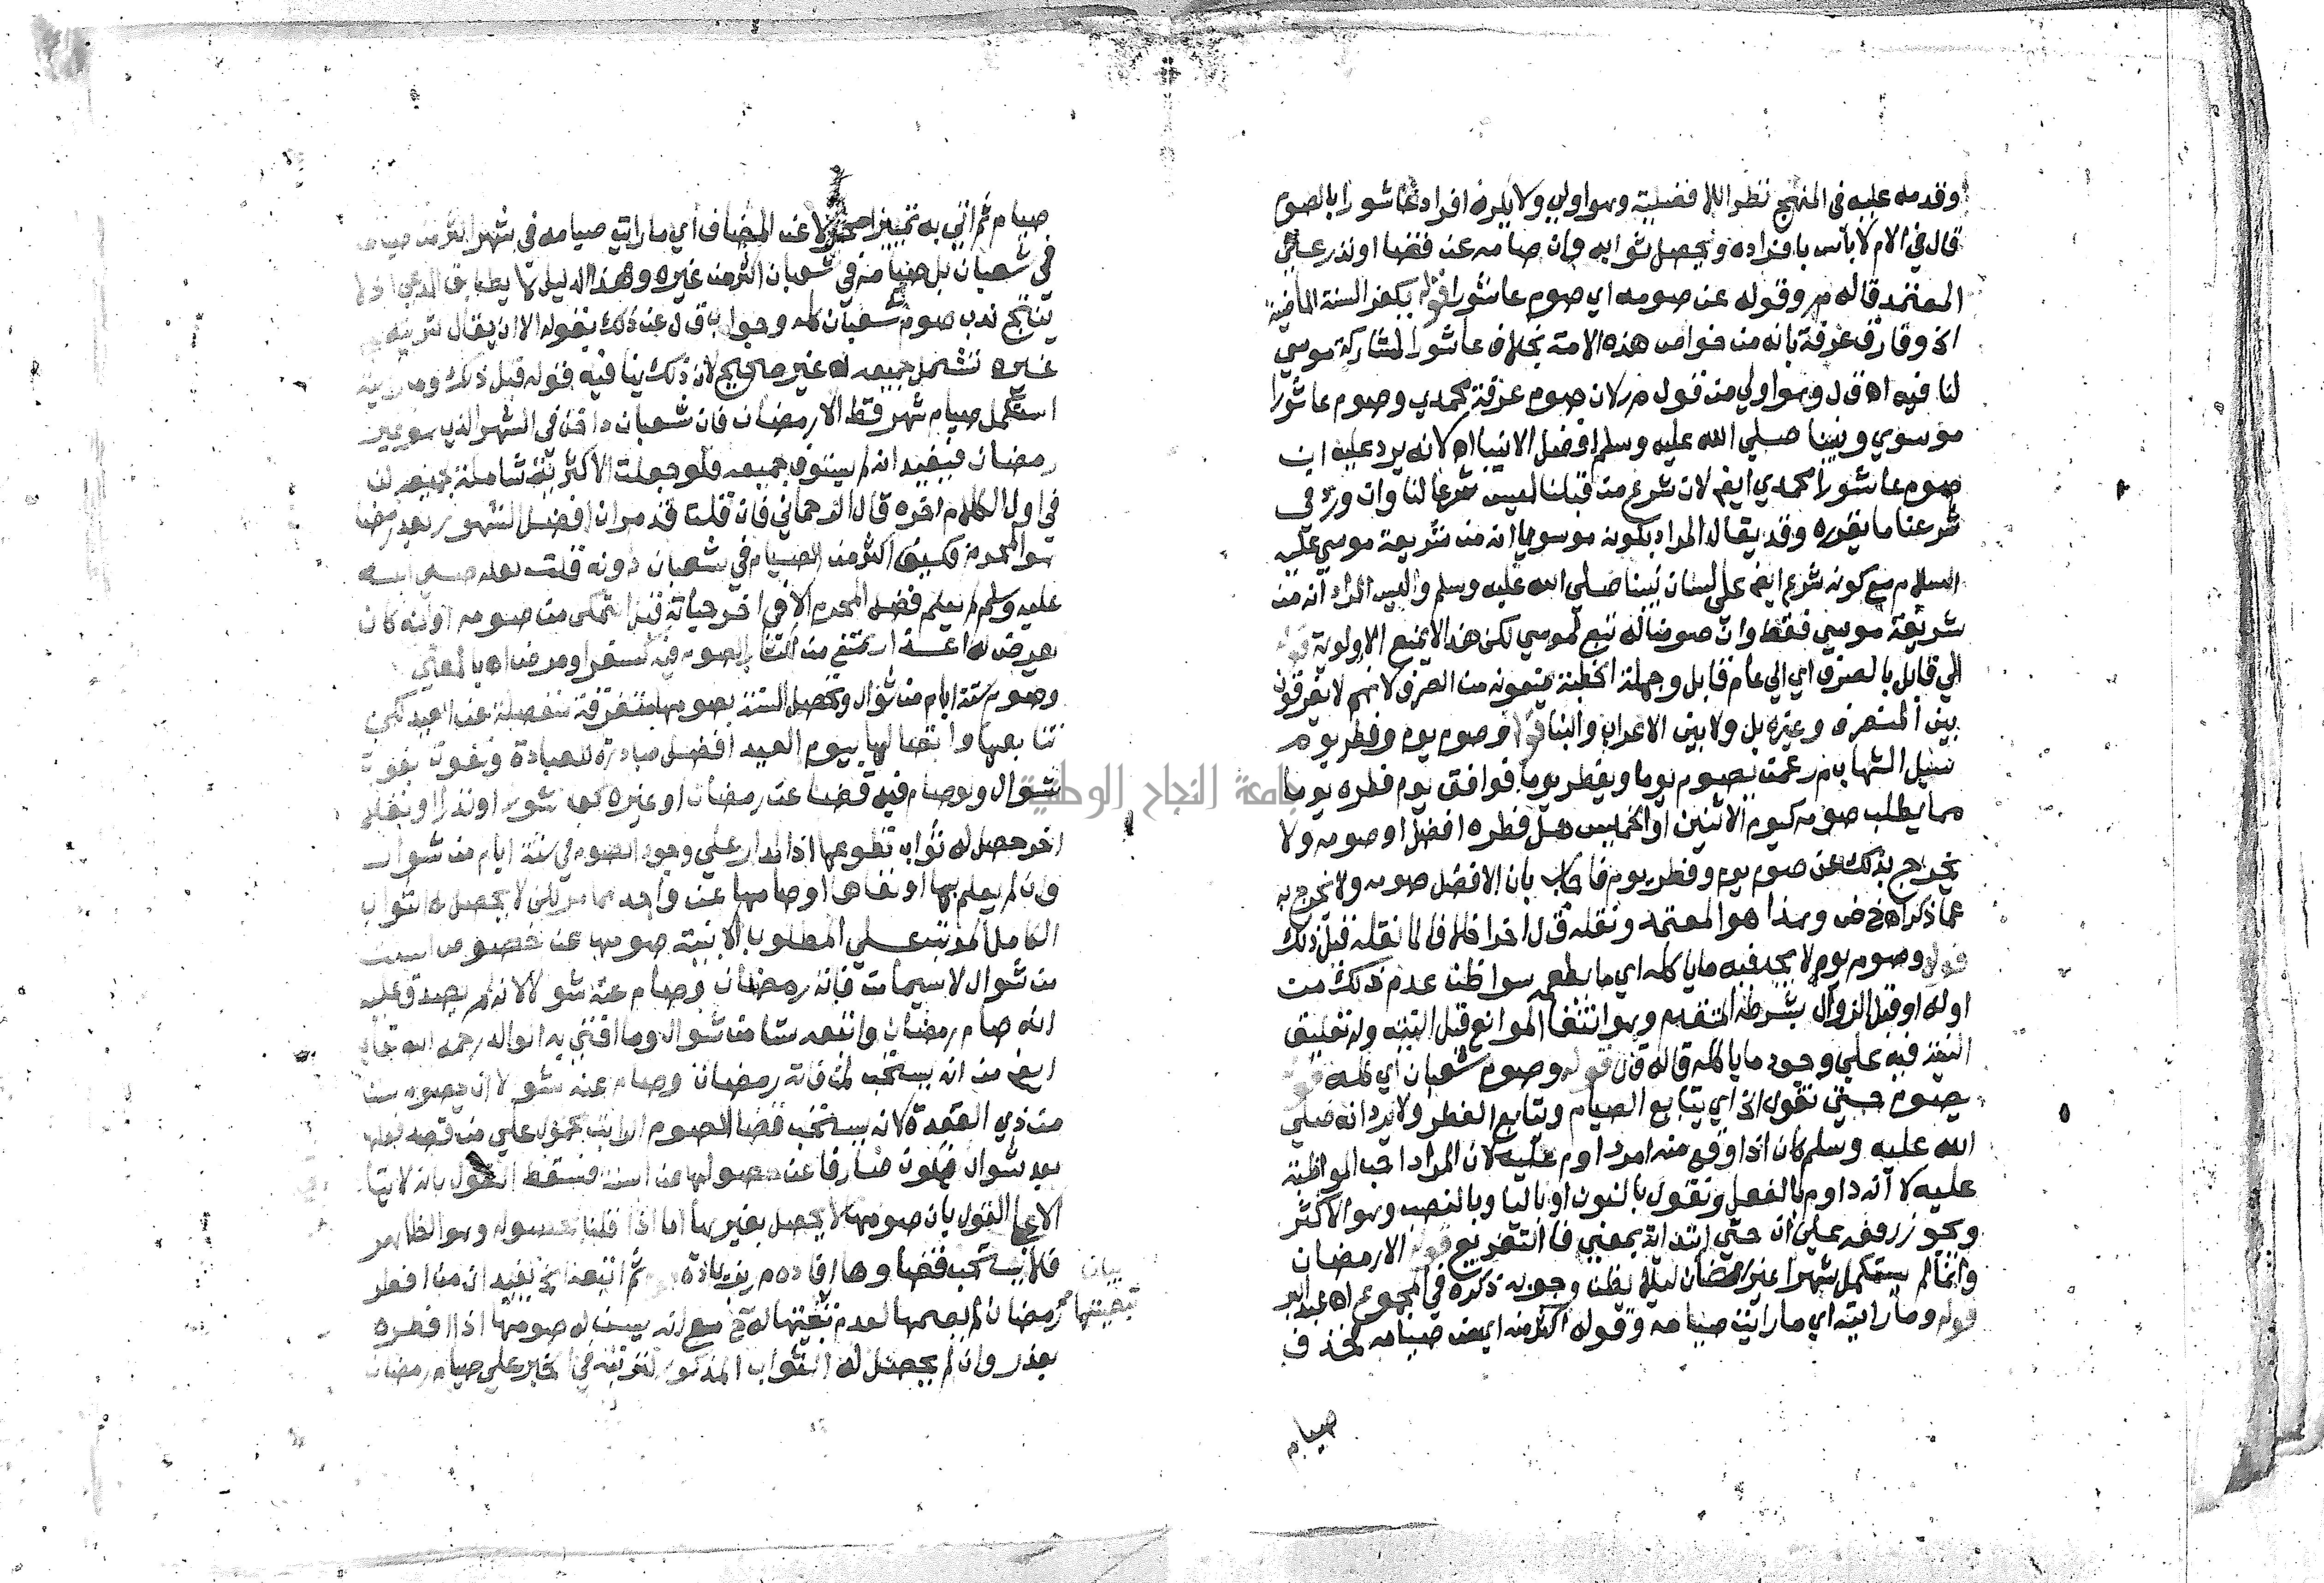 وقدمه عليه في المنهج نظرا للافضلية وهو اولي ولا يكره افراد عاشورا بالصوم
قال في الام لا بأس بافراده ويحصل ثوابه وان صامه عن قضا او نذر علي
المعتمد قاله م ر وقوله عن صومه اي صوم عاشورا قوله يكفر السنة الماضية
الخ وفارق عرفة بانه من خواص هذه الامة بخلاف عاشورا لمشاركة موسي
لنا فيه اه ق ل وهو اولي من قول م ر لان صوم عرفة محمدي وصوم عاشورا
موسوي ونبينا صلي الله عليه وسلم افضل الانبيا اه لانه يرد عليه ان
صوم عاشورا محمدي ايضا لان شرع من قبلنا ليس شرعا لنا وان ورد في
شرعنا ما يقرره وقد يقال المراد بكونه موسويا انه من شريعة موسي عليه
السلام مع كونه شرع ايضا علي لسان نبينا صلي الله عليه وسلم وليس المراد انه من
شريعة موسي فقط وان صومنا له تبع لموسي لكن هذا لا يمنع الاولوية قوله
الي قابل بالصرف اي الي عام قابل وجهلة الخطبة يمنعونه من الصرف لانهم لا يفرقون
بين المنصرف وغيره بل ولا بين الاعراب والبنا قوله وصوم يوم وفطر يوم
سئل الشهاب م ر عمن يصوم يوما ويفطر يوما فوافق يوم فطره يوما
مما يطلب صومه كيوم الاثنين او الخميس هل فطره افضل او صومه ولا
يخرج بذلك عن صوم يوم وفطر يوم فاجاب بان الافضل صومه ولا يخرج به
عما ذكر اه خ ض وهذا هو المعتمد ونقله ق ل اخرا خلافا لما نقله قبل ذلك
قوله وصوم يوم لا يجد فيه ما ياكله اي ما يطعم سوا ظن عدم ذلك من
اوله او قبل الزوال بشرطه المتقدم وهو انتفا الموانع قبل النية وله تعليق
النية فيه علي وجود ما ياكله قاله ق ل قوله وصوم شعبان اي كله قوله
يصوم حتي نقول الخ اي يتابع الصيام ويتابع الفطر ولا يرد انه صلي
الله عليه وسلم كان اذا وقع منه امر داوم عليه لان المراد احب المواظبة
عليه لا انه داوم بالفعل ونقول بالنون او بالتا وبالنصب وهو الاكثر
ويجوز رفعه علي ان حتي ابتدائية بمعني فا التفريع قوله الا رمضان
وانما لم يستكمل شهرا غير رمضان ليلا يظن وجوبه ذكره في المجموع اه عبد البر
قوله وما رايته اي ما رايت صيامه وقوله اكثر منه اي من صيامه فحذف
صيام
صيام ثم اتي به تمييزا محولا عن المضاف اي ما رايت صيامه في شهر اكثر من صيامه
في شعبان بل صيامه في شعبان اكثر من غيره وهذا الدليل لا يطابق المدعي اذ لا
ينتج ندب صوم شعبان كله وجواب ق ل عن ذلك بقوله الا ان يقال اكثريته
غيره تشمل جميعه اه غير صحيح لان ذلك ينافيه قوله قبل ذلك وما رايته
استكمل صيام شهر قط الا رمضان فان شعبان داخل في الشهر الذي هو غير
رمضان فيفيد انه لم يستوف جميعه فلو جعلت الاكثرية شاملة لجميعه
في اول الكلام اخره قال الرحماني فان قلت قد مر ان افضل الشهور بعد رمضان
هو المحرم فكيف اكثر من الصيام في شعبان دونه قلت لعله صلي الله
عليه وسلم لم يعلم فضل المحرم الا في اخر حياته قبل التمكن من صومه او انه كان
يعرض له اعذار تمنع من اكثار الصوم فيه كسفر او مرض اه بالمعني
وصوم ستة ايام من شوال وتحصل السنة بصومها متفرقة منفصلة عن العيد لكن
تتابعها واتصالها بيوم العيد افضل مبادرة للعبادة وتفوت بفوت
شوال ولو صام فيه قضا عن رمضان او غيره او نذرا او نفلا
اخر حصل له ثواب تطوعها اذ المدار علي وجود الصوم في ستة ايام من شوال
وان لم يعلم بها او نفاها او صامها عن واحد مما مر لكن لا يحصل له الثواب
الكامل المرتب علي المطلوب الا بنية صومها عن خصوص الست
من شوال لا سيما من فاته رمضان وصام عنه شوالا لانه لم يصدق عليه
انه صام رمضان واتبعه ستا من شوال وما افتي به الوالد رحمه الله تعالي
ايضا من انه يستحب لمن فاته رمضان وصام عنه شوالا ان يصوم ستا
من ذي القعدة لانه يستحب قضا الصوم الراتب محمول علي من قصد فعلها
بعد شوال فيكون صارفا عن حصولها من السنة فسقط القول بانه لا يتاتي
الا علي القول بان صومها لا يحصل بغيرها اما اذا قلنا بحصوله وهو الظاهر
فلا يستحب قضاوها افاده م ر بزيادة ثم اتبعه الخ يفيد ان من افطر
رمضان لم يصمها لعدم تبعيتها له مع انه يسن له صومها اذا افطره
بعذر وان لم يحصل له الثواب المذكور لترتبه في الخبر علي صيام رمضان
بيان
تبعيتها
جامعة النجاح الوطنية